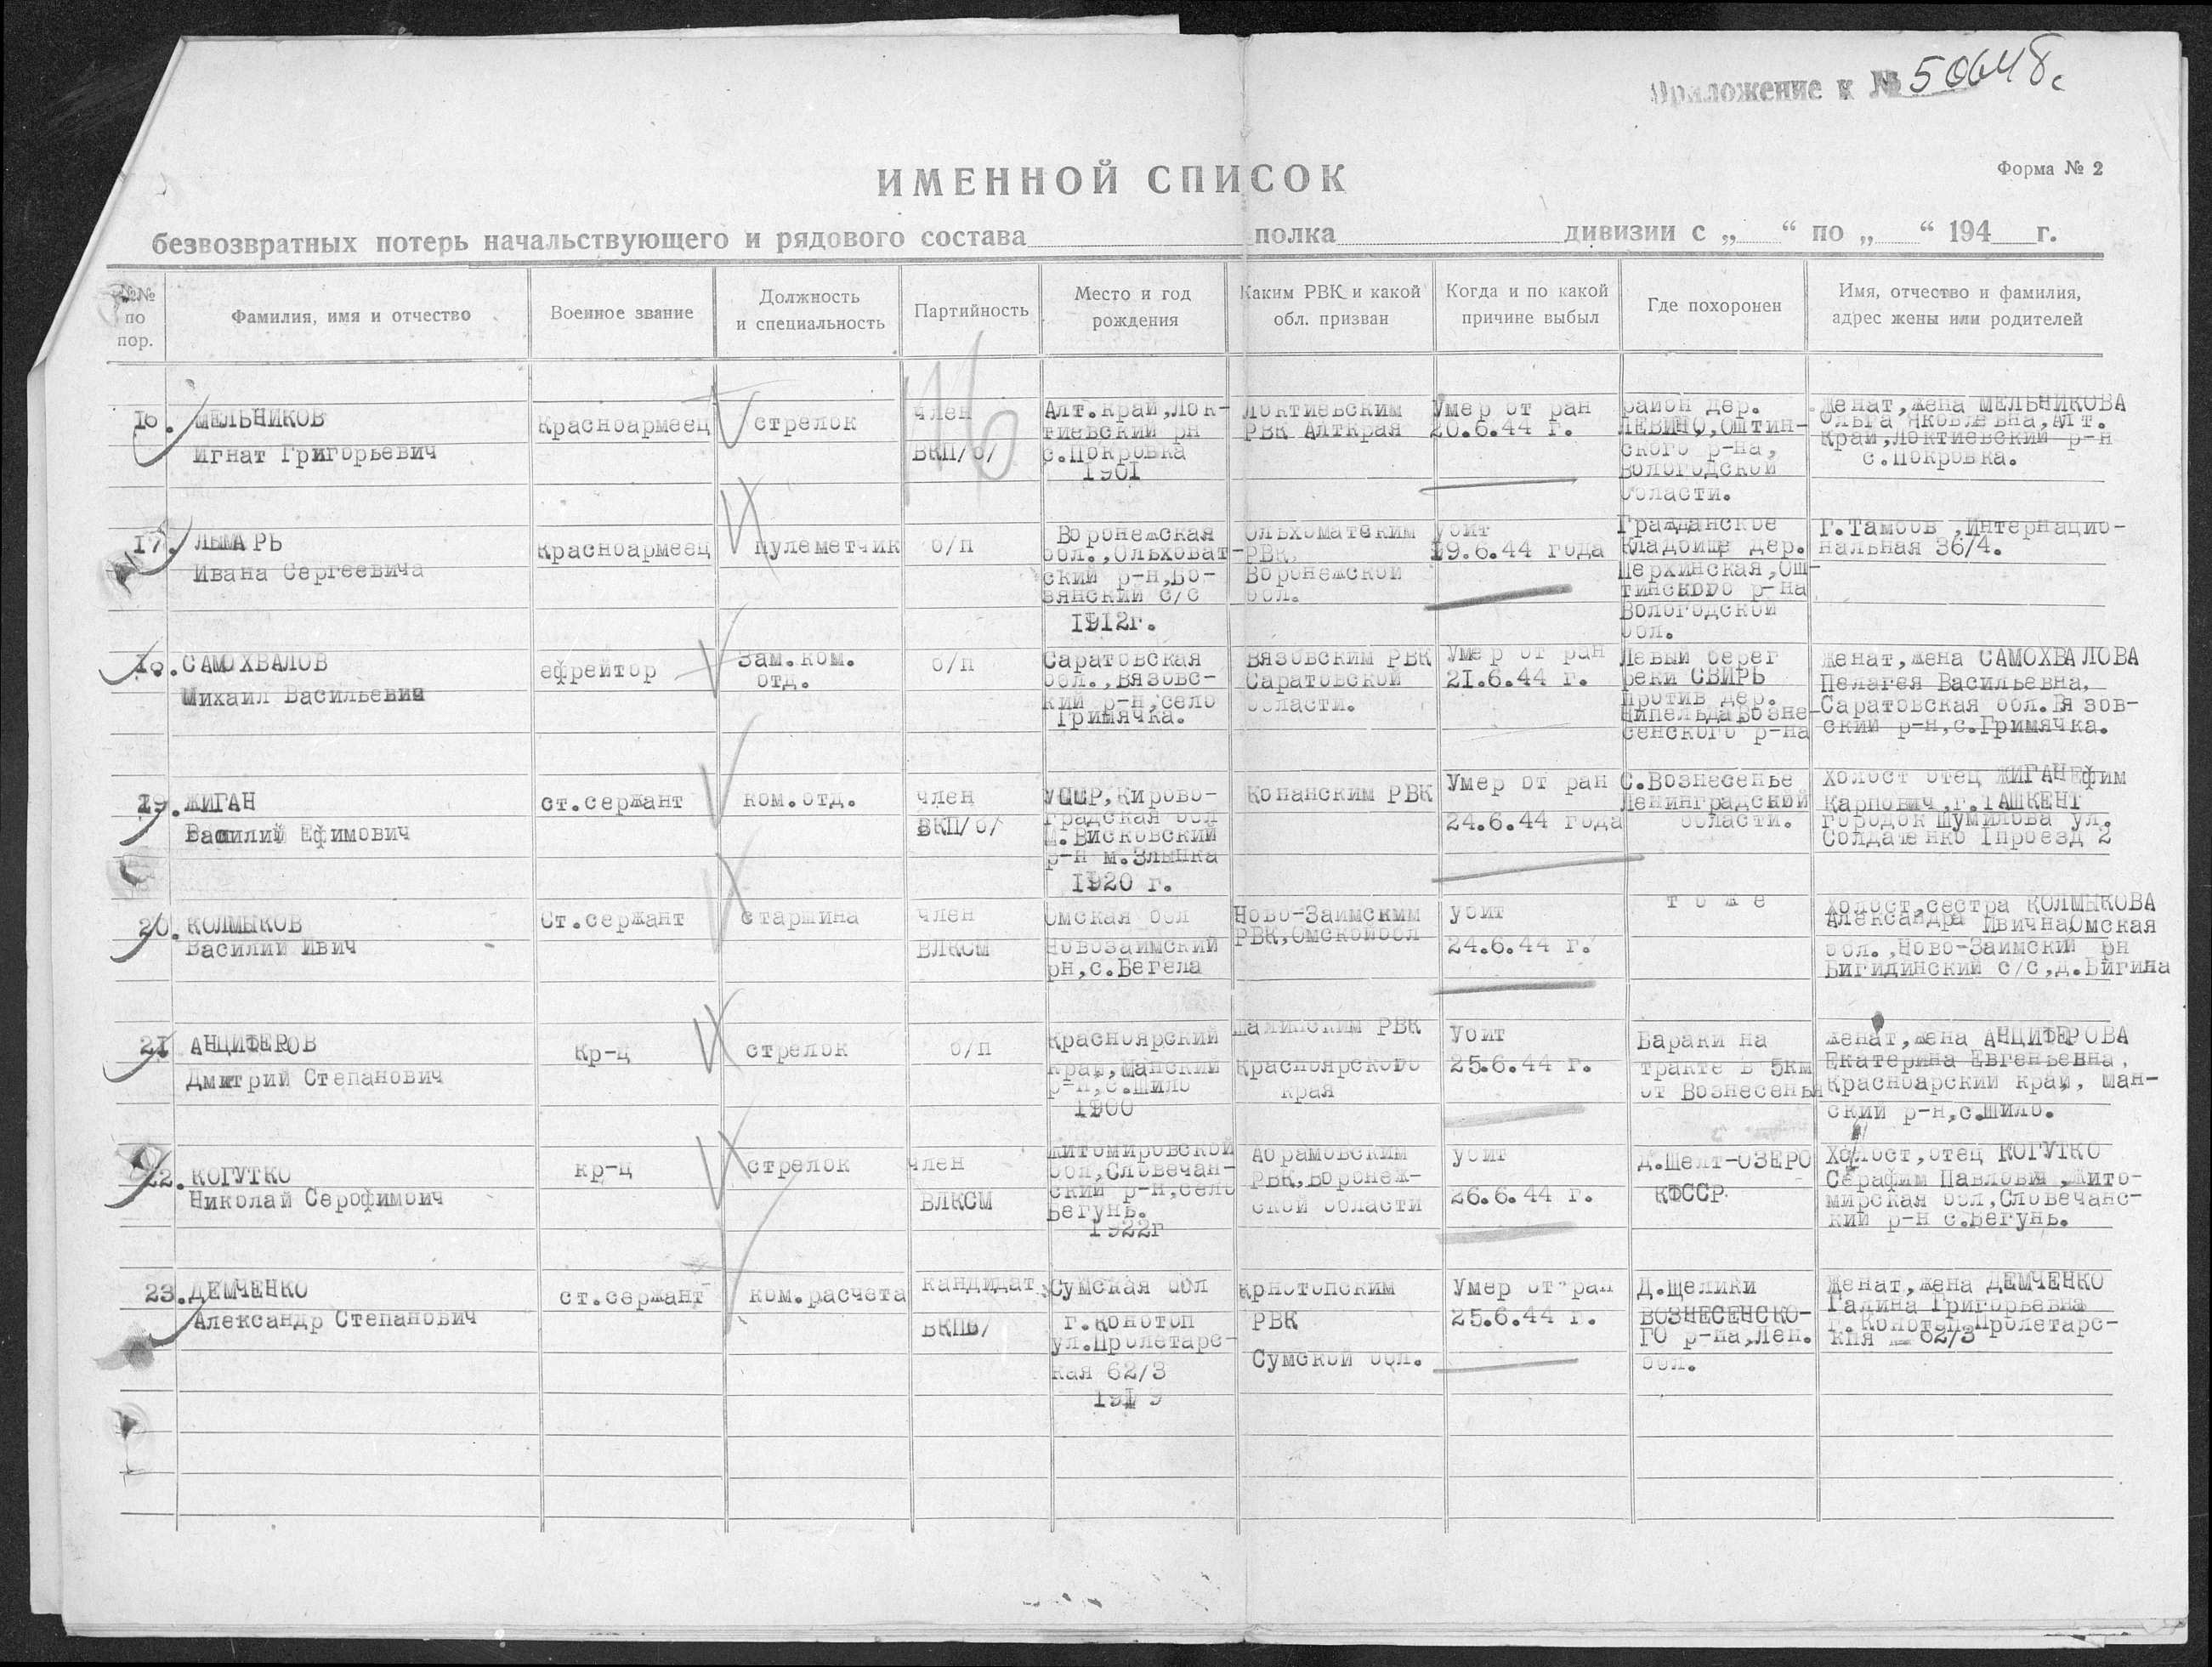 Приложение к № 50648с
ИМЕННОЙ СПИСОК
Форма № 2
безвозвратных потерь начальствующего и рядового состава полка дивизии с „ “ по „ “ 194 г.
№№ по пор.
Фамилия, имя и отчество
Военное звание
Должность и специальность
Партийность
Место и год рождения
Каким РВК и какой обл. призван
Когда и по какой причине выбыл
Где похоронен
Имя, отчество и фамилия, адрес жены или родителей
16. МЕЛЬНИКОВ
Игнат Григорьевич
Красноармеец
стрелок
член
ВКП/б/
Алт.край,Лок-
тиевский рн
с.Покровка
1901
Локтиевским
РВК Алткрая
Умер от ран
20.6.44 г.
район дер.
ЛЕВИНО,Оштин-
ского р-на,
Вологодской
области.
Женат,жена МЕЛЬНИКОВА
Ольга Яковлевна,Алт.
Край,Локтиевский р-н
с.Покровка.
17. ЛЫМАРЬ
Ивана Сергеевича
Красноармеец
пулеметчик
б/п
Воронежская
обл.,Ольховат-
ский р-н,Бо-
вянский с/с
1912г.
Ольхоматским
РВК,
Воронежской
обл.
убит
19.6.44 года
Гражданское
кладбище дер.
Шерхинская,Ош-
тинского р-на
Вологодской
обл.
Г.Тамбов,Интернацио-
нальная 36/4.
18. САМОХВАЛОВ
Михаил Васильевич
ефрейтор
Зам.ком.
отд.
б/п
Саратовская
обл.,Вязовс-
кий р-н,село
Гримячка.
Вязовским РВК
Саратовской
области.
Умер от ран
21.6.44 г.
Левый берег
реки СВИРЬ
против дер.
Нипельда Возне-
сенского р-на
Женат,жена САМОХВАЛОВА
Пелагея Васильевна,
Саратовская обл.Вязов-
ский р-н,с.Гримячка.
19. ЖИГАН
Василий Ефимович
ст.сержант
ком.отд.
член
ВКП/б/
УССР,Кирово-
градская обл
М.Висковский
р-н м.Злынка
1920 г.
Копанским РВК
Умер от ран
24.6.44 года
С.Вознесенье
Ленинградской
области.
Холост отец ЖИГАН Ефим
Карпович,г.ТАШКЕНТ
городок Шумилова ул.
Солдатенко 1проезд 2
20. КОЛМЫКОВ
Василий Ивич
Ст.сержант
старшина
член
ВЛКСМ
Омская обл
Новозаимский
рн,с.Бегела
Ново-Заимским
РВК,Омскойобл
убит
24.6.44 г.
т о ж е
Холост,сестра КОЛМЫКОВА
Александра ИвичнаОмская
обл.,Ново-Заимский рн
Бигидинский с/с,д.Бигила
21 АНЦИФЕРОВ
Дмитрий Степанович
Кр-ц
стрелок
б/п
Красноярский
край,Манский
р-н,с.Шило
1900
РВК
Красноярского
края
Убит
25.6.44 г.
Бараки на
тракте в 5км
от Вознесенья
женат,жена АНЦИФЕРОВА
Екатерина Евгеньевна,
Красноярский край, Ман-
ский р-н,с.Шило.
22. КОГУТКО
Николай Серофимович
кр-ц
стрелок
член
ВЛКСМ
Житомировской
обл,Словечан-
ский р-н,село
Бегунь.
1922г
Абрамовским
РВК,Воронеж-
ской области
убит
26.6.44 г.
д.Шелт-ОЗЕРО
КФССР
Холост,отец КОГУТКО
Серафим Павлович,Жито-
мирская обл,Словечанс-
кий р-н с.Бегунь.
23. ДЕМЧЕНКО
Александр Степанович
ст.сержант
ком.расчета
кандидат
ВКПб/
Сумская обл
г.Конотоп
ул.Пролетарс-
кая 62/3
1919
Крнотопским
РВК
Сумской обл.
Умер от ран
25.6.44 г.
Д.Щелики
ВОЗНЕСЕНСКО-
ГО р-на,Лен.
обл.
Женат,жена ДЕМЧЕНКО
Галина Григорьевна
г.Конотоп Пролетарс-
кая 62/3